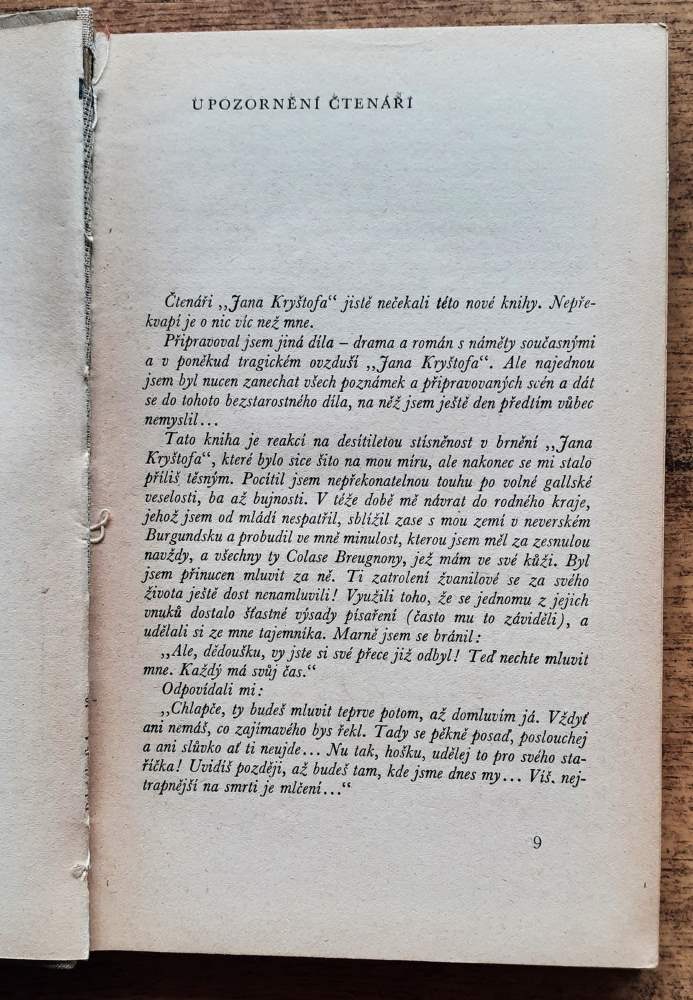 UPOZORNĚNÍ ČTENÁŘI
Čtenáři „Jana Kryštofa“ jistě nečekali této nové knihy. Nepře-
kvapí je o nic víc než mne.
Připravoval jsem jiná díla – drama a román s náměty současnými
a v poněkud tragickém ovzduší „Jana Kryštofa“. Ale najednou
jsem byl nucen zanechat všech poznámek a připravovaných scén a dát
se do tohoto bezstarostného díla, na něž jsem ještě den předtím vůbec
nemyslil...
Tato kniha je reakcí na desítiletou stísněnost v brnění „Jana
Kryštofa“, které bylo sice šito na mou míru, ale nakonec se mi stalo
příliš těsným. Pocítil jsem nepřekonatelnou touhu po volné gallské
veselosti, ba až bujnosti. V téže době mě návrat do rodného kraje,
jehož jsem od mládí nespatřil, sblížil zase s mou zemí v neverském
Burgundsku a probudil ve mně minulost, kterou jsem měl za zesnulou
navždy, a všechny ty Colase Breugnony, jež mám ve své kůži. Byl
jsem přinucen mluvit za ně. Ti zatrolení žvanilové se za svého
života ještě dost nenamluvili! Využili toho, že se jednomu z jejich
vnuků dostalo šťastné výsady písaření (často mu to záviděli), a
udělali si ze mne tajemníka. Marně jsem se bránil:
„Ale, dědoušku, vy jste si své přece již odbyl! Teď nechte mluvit
mne. Každý má svůj čas.“
Odpovídali mi:
„Chlapče, ty budeš mluvit teprve potom, až domluvím já. Vždyť
ani nemáš, co zajímavého bys řekl. Tady se pěkně posaď, poslouchej
a ani slůvko ať ti neujde... Nu tak, hošku, udělej to pro svého sta-
říčka! Uvidíš později, až budeš tam, kde jsme dnes my... Víš, nej-
trapnější na smrti je mlčení...“
9